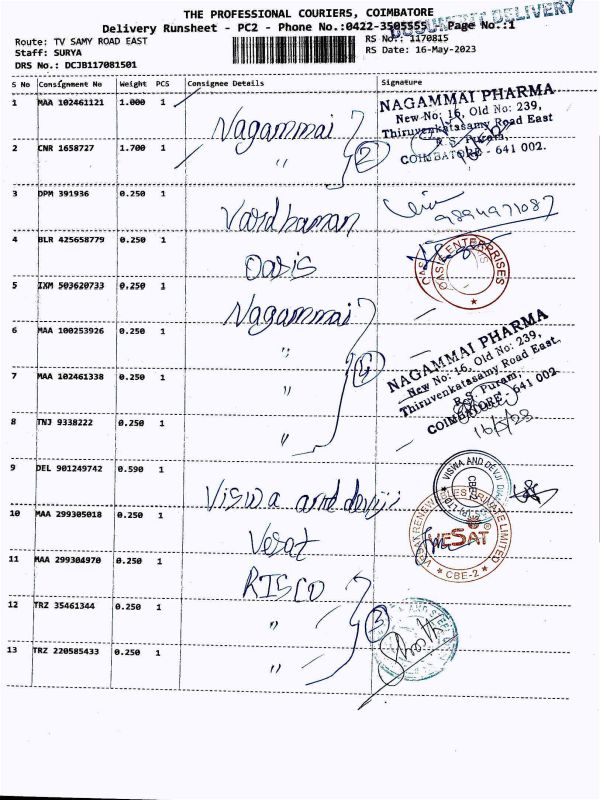 THE PROFESSIONAL COURIERS, COIMBATORE
DOCUMENT DELIVERY
Delivery Runsheet - PC2 - Phone No.:0422-3505555 Page No.:1
Route: TV SAMY ROAD EAST RS No.: 1170815
Staff: SURYA RS Date: 16-May-2023
DRS No.: DCJB117081501
S No Consignment No Weight PCS Consignee Details Signature
1 MAA 102461121 1.000 1 Nagammai
NAGAMMAI PHARMA
New No: 16, Old No: 239,
Thiruvenkatasamy Road East
R.S. Puram,
COIMBATORE - 641 002.
2 CNR 1658727 1.700 1 " 2
3 DPM 391936 0.250 1 Vardhaman 9894971087
4 BLR 425658779 0.250 1 Oasis
OASIS ENTERPRISES
5 IXM 503620733 0.250 1 Nagammai
6 MAA 100253926 0.250 1 "
NAGAMMAI PHARMA
New No: 16, Old No: 239,
Thiruvenkatasamy Road East,
R.S. Puram,
COIMBATORE - 641 002
7 MAA 102461338 0.250 1 " 4
8 TNJ 9338222 0.250 1 " 16/5/23
9 DEL 901249742 0.590 1 Viswa and devji
VISWA AND DEVJI
CBE
10 MAA 299305018 0.250 1 Vesat
PRIVATE LIMITED
VESAT ®
CBE-2
11 MAA 299304970 0.250 1 RISCO
12 TRZ 35461344 0.250 1 " 3
13 TRZ 220585433 0.250 1 "